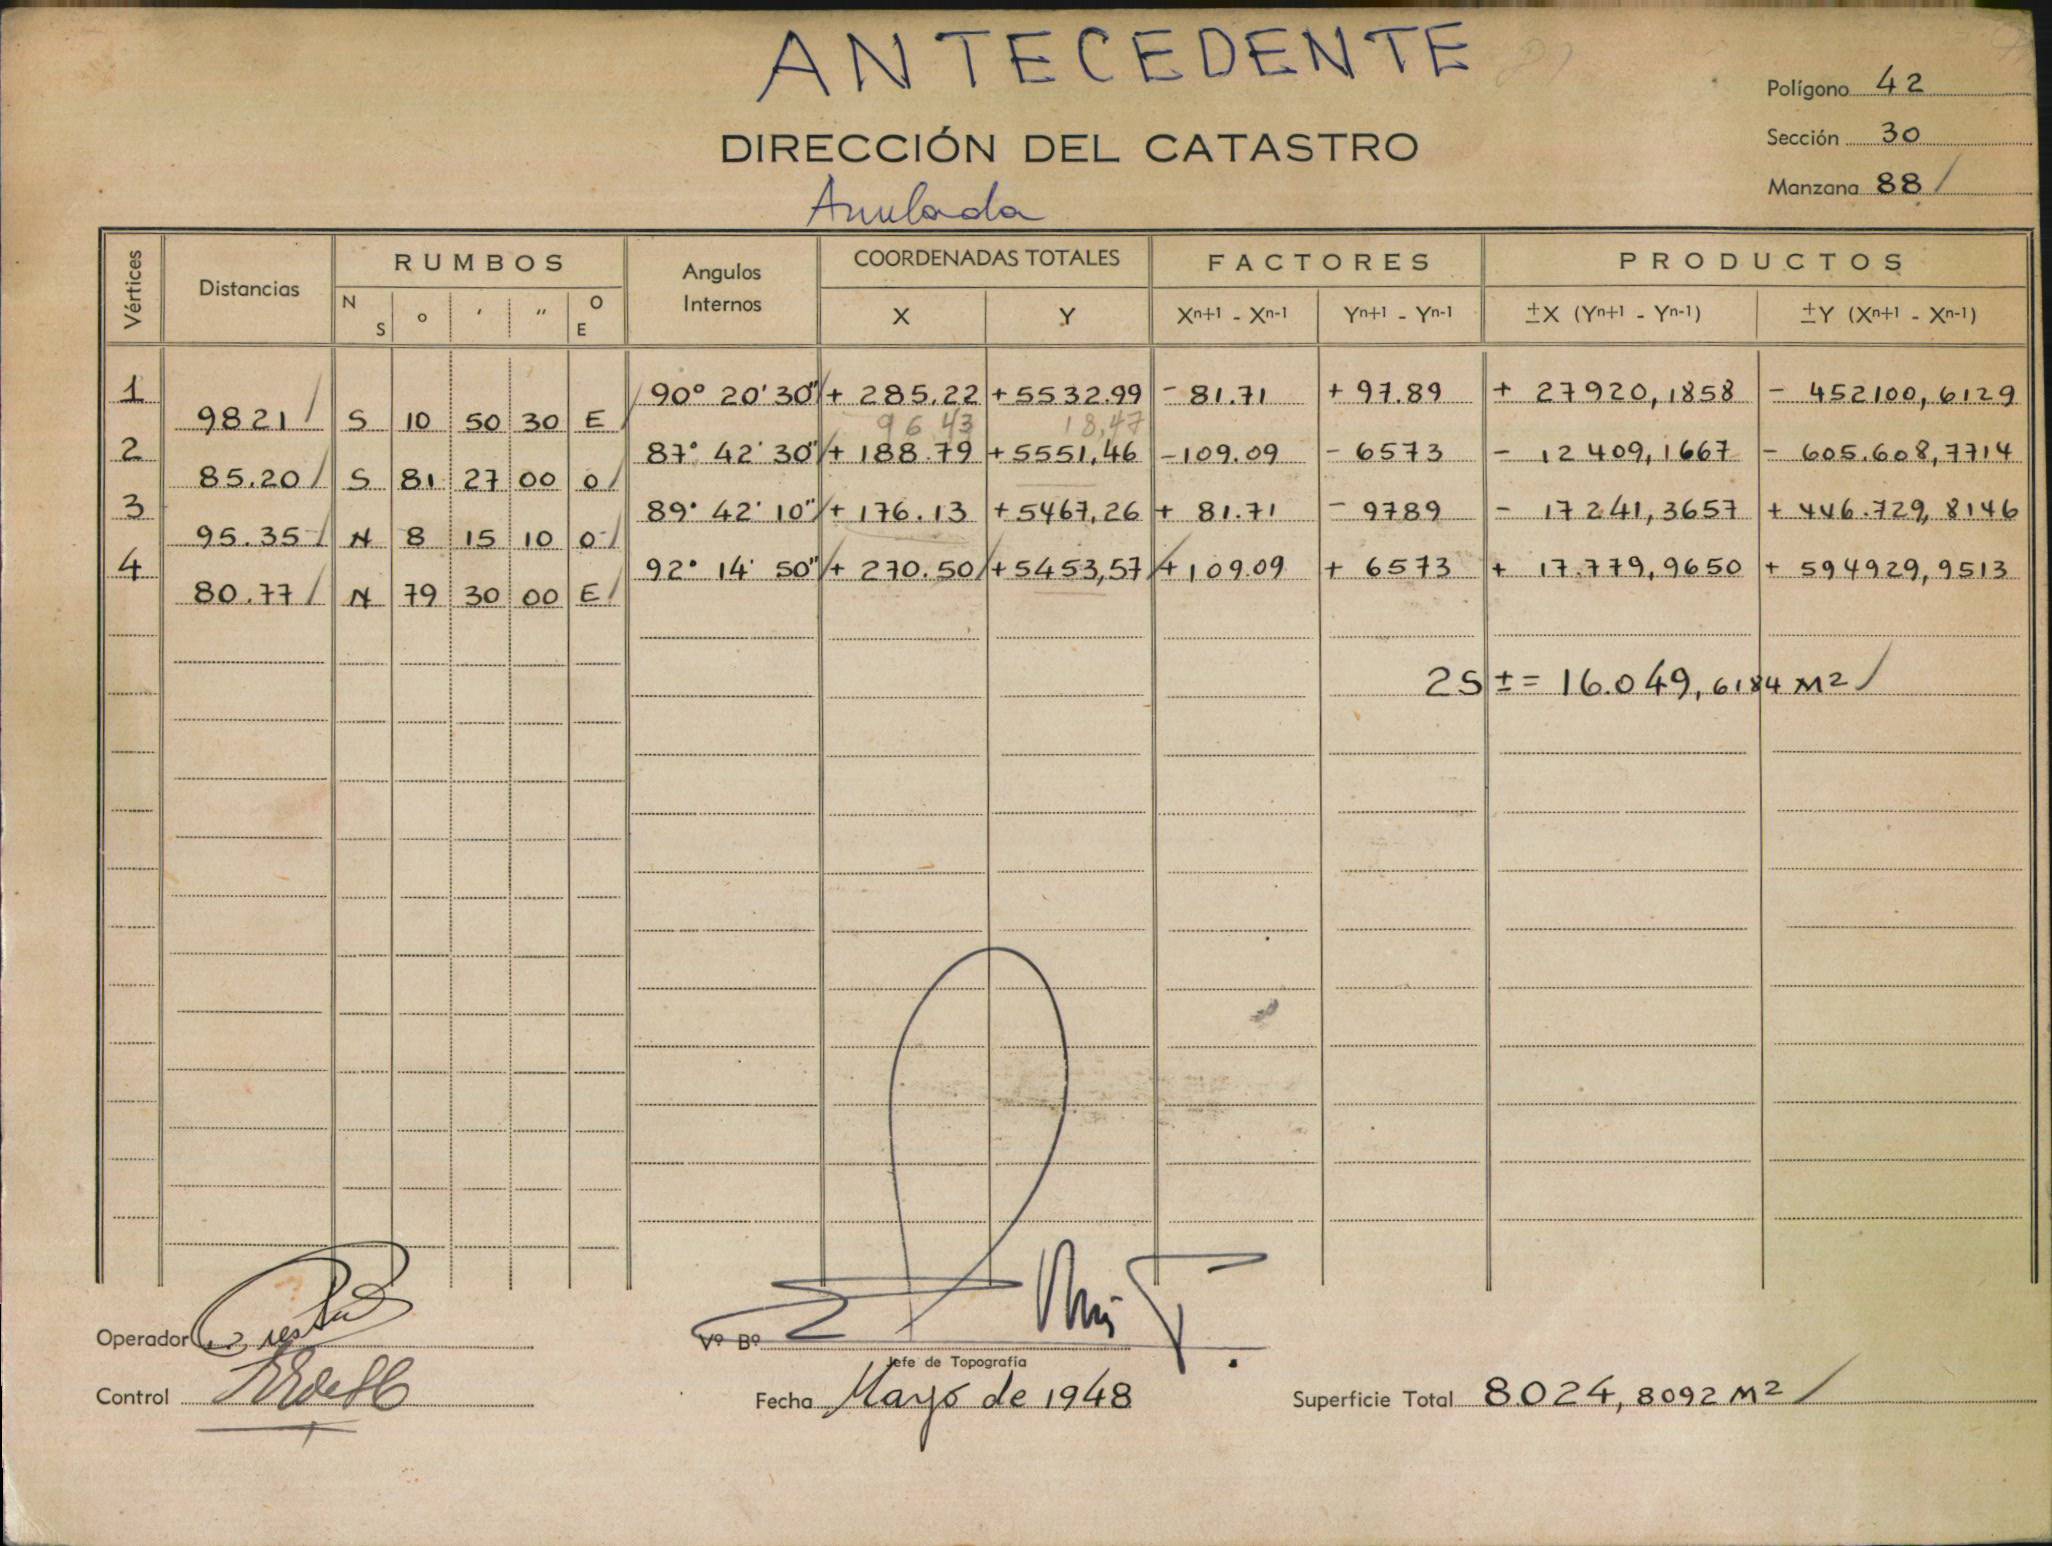 ANTECEDENTE
Polígono 42
DIRECCIÓN DEL CATASTRO
Sección 30
Manzana 88 /
Anulada
Vértices Distancias RUMBOS Angulos Internos COORDENADAS TOTALES FACTORES PRODUCTOS
N S o ′ ″ O E X Y Xn+1 - Xn-1 Yn+1 - Yn-1 ±X (Yn+1 - Yn-1) ±Y (Xn+1 - Xn-1)
1 90° 20' 30" + 285.22 +5532.99 - 81.71 + 97.89 + 27920,1858 - 452100,6129
9821 / S 10 50 30 E / 96 43 18,47
2 87° 42' 30" + 188.79 +5551,46 -109.09 - 6573 - 12409,1667 - 605.608,7714
85.20 / S 81 27 00 O /
3 89° 42' 10" + 176.13 +5467,26 + 81.71 - 9789 - 17241,3657 + 446.729,8146
95.35 / N 8 15 10 O /
4 92° 14' 50" + 270.50 +5453,57 +109.09 + 6573 + 17.779,9650 + 594929,9513
80.77 / N 79 30 00 E /
2S ± = 16.049,6184 M2 /
Operador
Vº Bº
Jefe de Topografía
Control
Fecha Mayo de 1948
Superficie Total 8.024,8092 M2 /